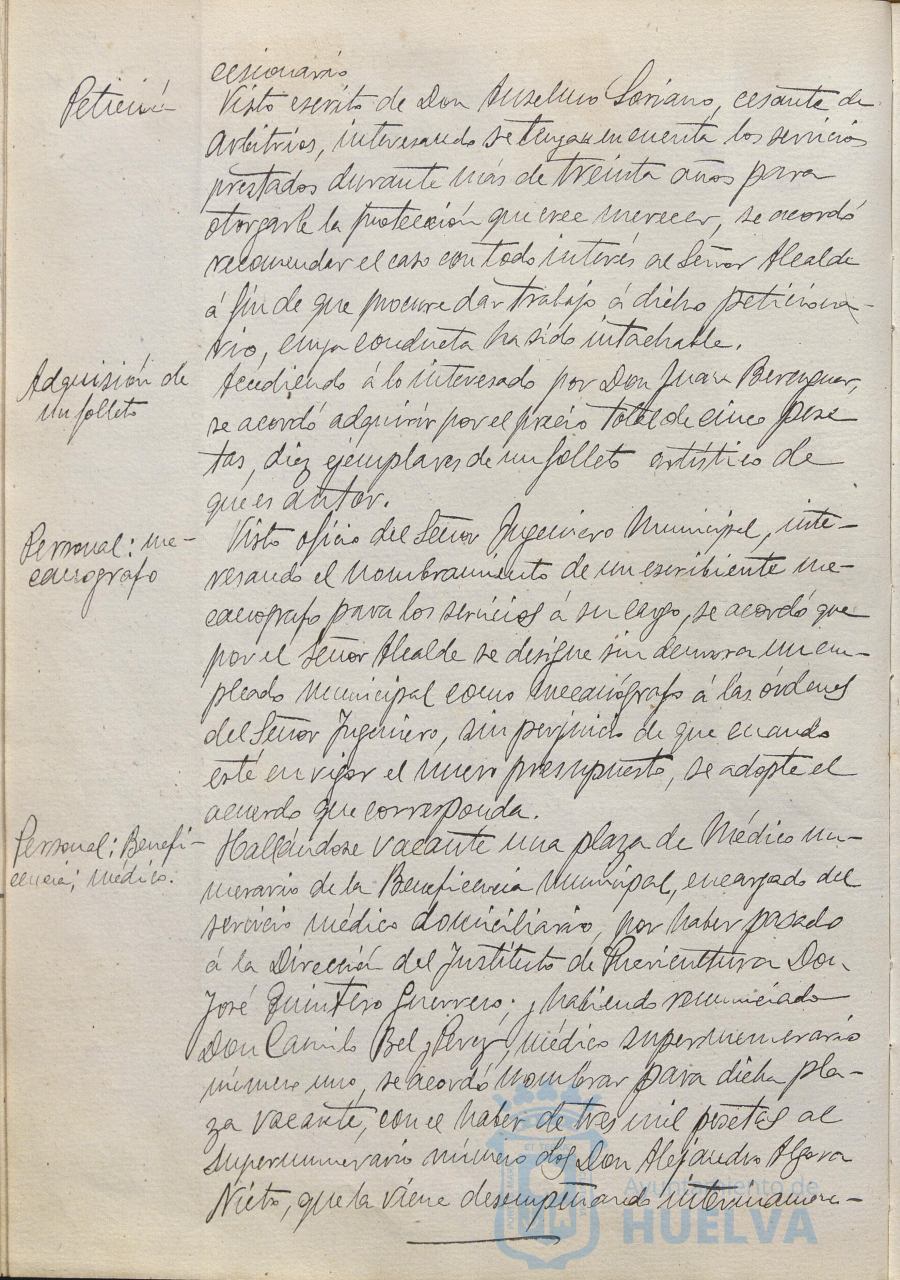 cesionario
Petición
Visto escrito de Don Anselmo Soriano, cesante de
Arbitrios, interesando se tenga en cuenta los servicios
prestados durante más de treinta años para
otorgarle la protección que cree merecer, se acordó
recomendar el caso con todo interés al Señor Alcalde
á fin de que procure dar trabajo á dicho peticiona-
rio, cuya conducta ha sido intachable.
Adquisión de
un folleto
Accediendo á lo interesado por Don Juan Berenguer,
se acordó adquirir por el precio total de cinco pese
tas, diez ejemplares de un folleto artístico de
que es autor.
Personal: me-
canografo
Visto oficio del Señor Ingeniero Municipal, inte-
resando el nombramiento de un escribiente me-
canografo para los servicios á su cargo, se acordó que
por el Señor Alcalde se designe sin demora un em-
pleado municipal como mecanógrafo á las órdenes
del Señor Ingeniero, sin perjuicio de que cuando
esté en vigor el nuevo presupuesto, se adopte el
acuerdo que corresponda.
Personal: Benefi-
cencia; médico.
Hallándose vacante una plaza de Médico nu-
merario de la Beneficencia Municipal, encargado del
servicio médico domiciliario, por haber pasado
á la Dirección del Instituto de Puericultura Don
José Quintero Guerrero; y habiendo renunciado
Don Camilo Bel y Perez, médico supernumerario
número uno, se acordó nombrar para dicha pla-
za vacante, con el haber de tres mil pesetas al
supernumerario número dos Don Alejandro Algora
Nieto, que la viene desempeñando interinamen-
Ayuntamiento de
HUELVA